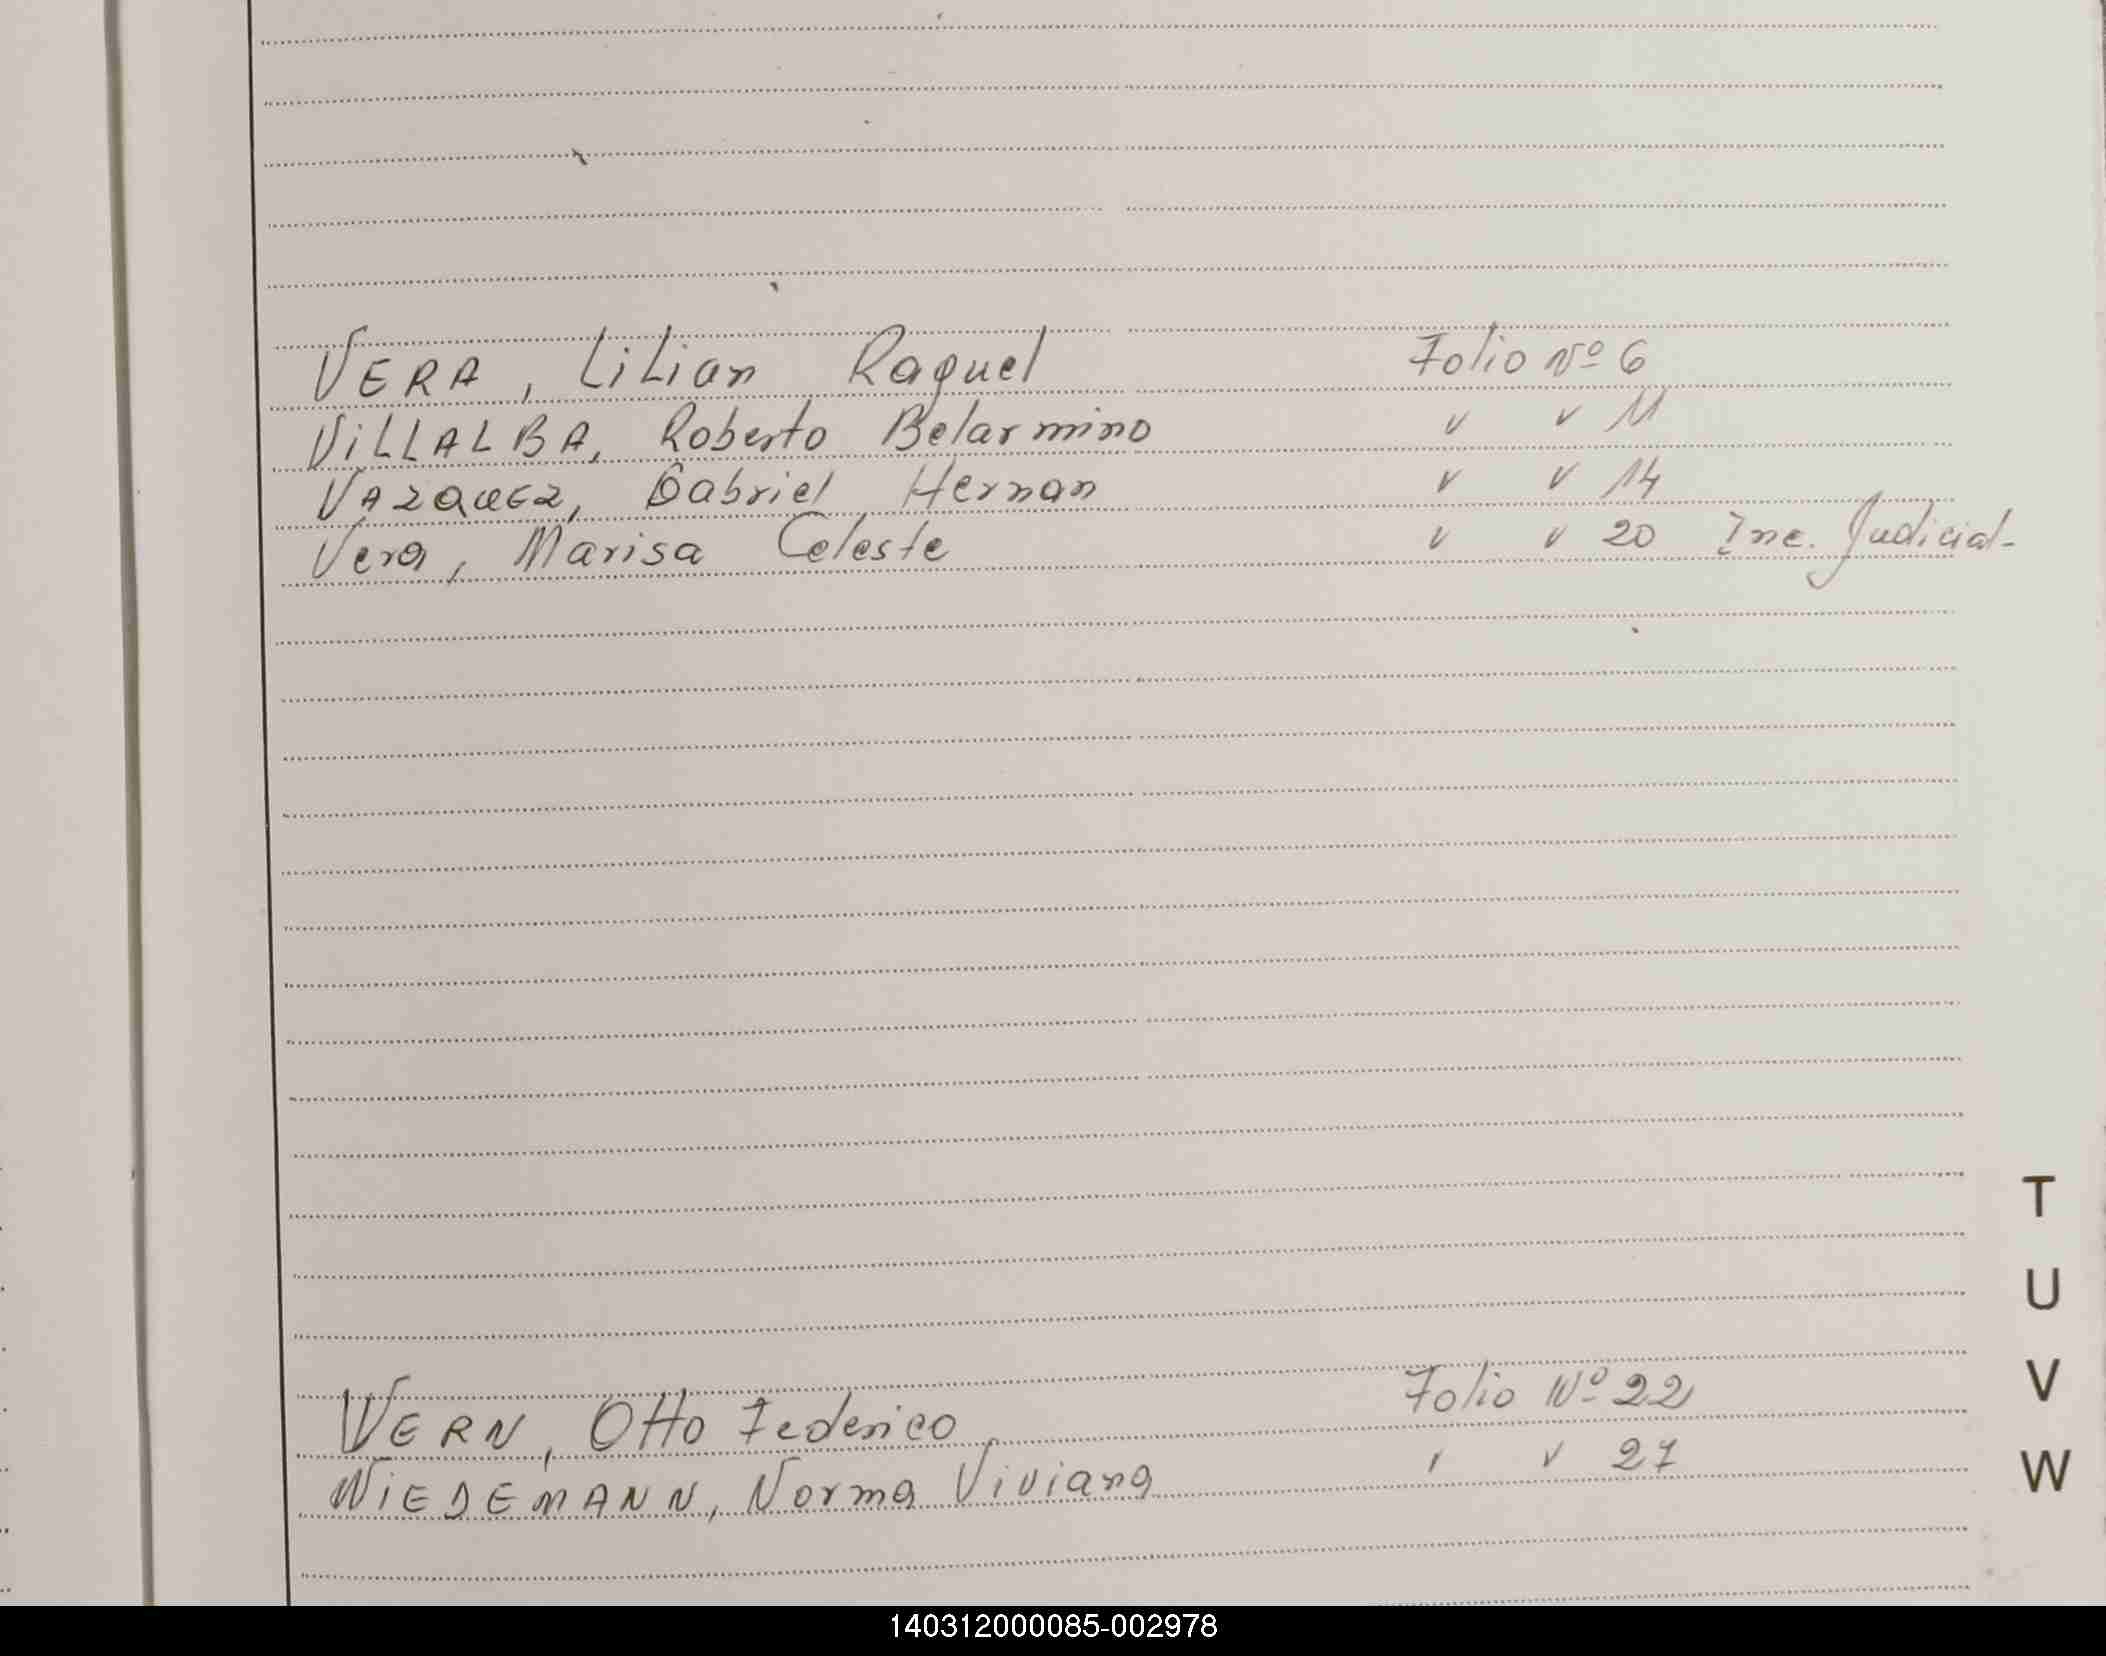 VERA, Lilian Raquel Folio Nº 6
VILLALBA, Roberto Belarmino v v 11
VAZQUEZ, Gabriel Hernan v v 14
Vera, Marisa Celeste v v 20 Inc. Judicial-
T
U
V
WERN, Otto Federico Folio Nº 22
WIEDEMANN, Norma Viviana v v 27
W
140312000085-002978